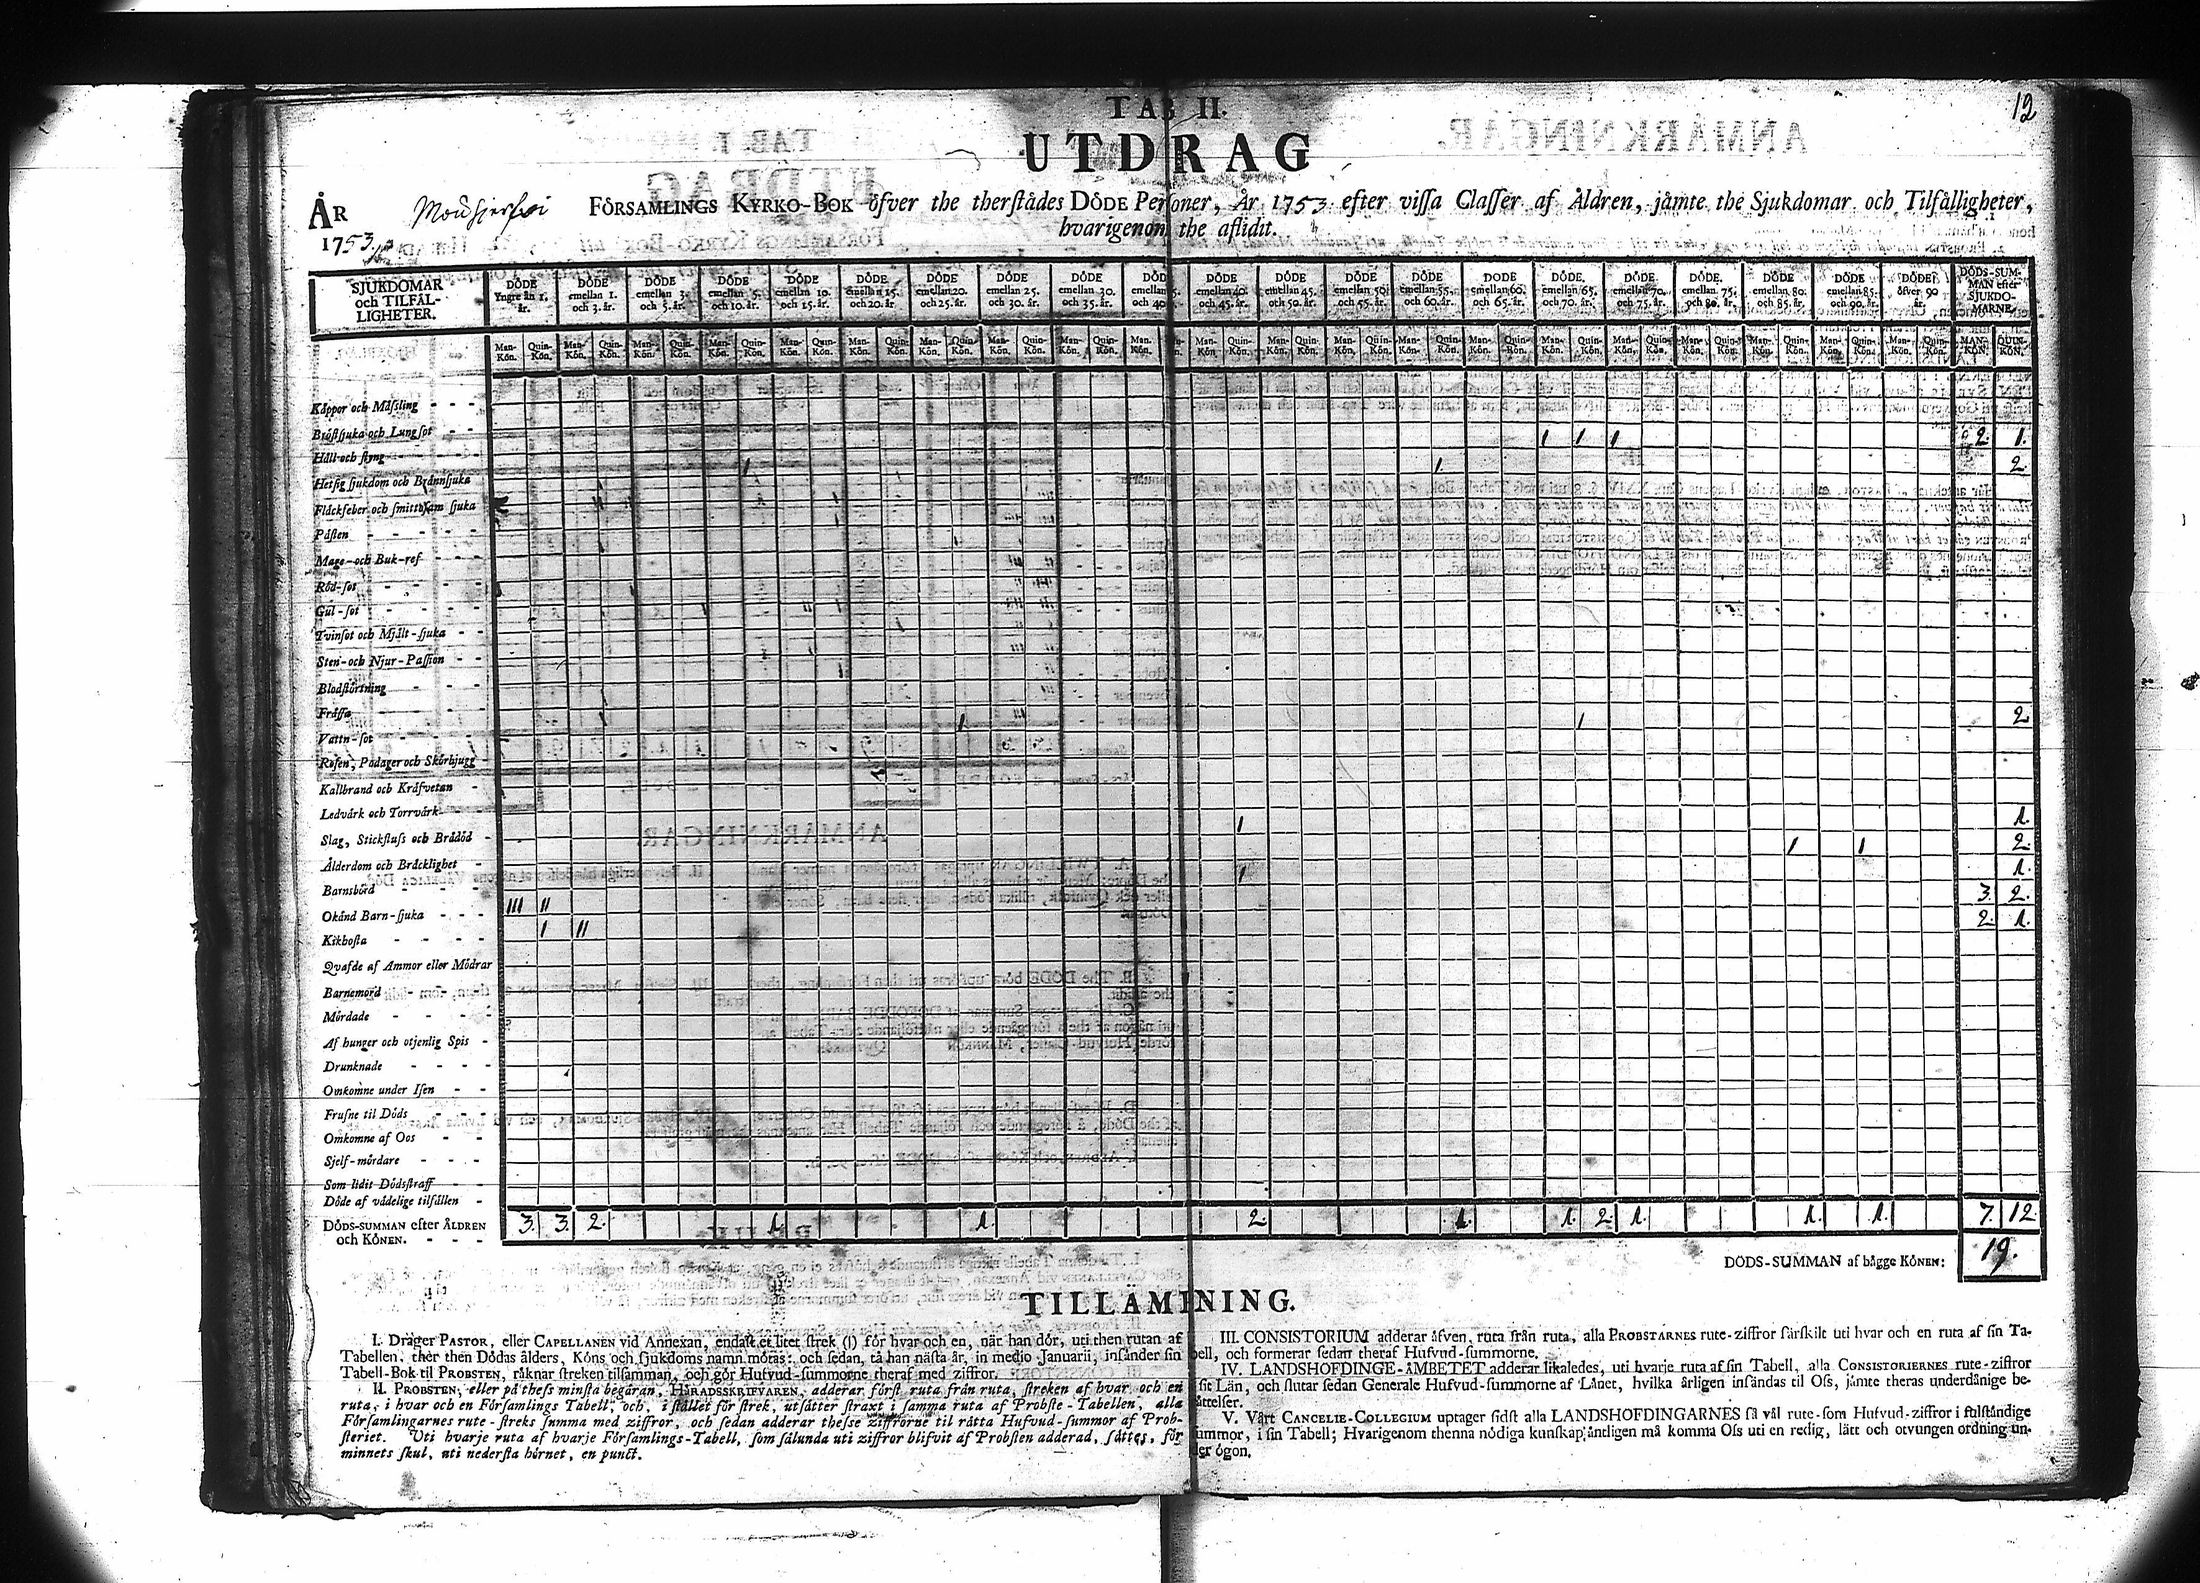 12
TAB II.
UTDRAG
ÅR FÖRSAMLINGS KYRKO-BOK öfver the therstädes DÖDE Personer, År 1753 efter vissa Classer af Åldren, jämte the Sjukdomar och Tilfälligheter,
1753. hvarigenom the aflidit.
SJUKDOMAR och TILFÄLLIGHETER.
DÖDE Yngre än 1. år.
DÖDE emellan 1. och 3. år.
DÖDE emellan 3. och 5. år.
DÖDE emellan 5. och 10. år.
DÖDE emellan 10. och 15. år.
DÖDE emellan 15. och 20. år.
DÖDE emellan 20. och 25. år.
DÖDE emellan 25. och 30. år.
DÖDE emellan 30. och 35. år.
DÖDE emellan och 40
DÖDE emellan 40. och 45. år.
DÖDE emellan 45. och 50. år.
DÖDE emellan 50. och 55. år.
DÖDE emellan 55. och 60. år.
DÖDE emellan 60. och 65. år.
DÖDE emellan 65. och 70. år.
DÖDE emellan 70. och 75. år.
DÖDE emellan 75. och 80. år.
DÖDE emellan 80. och 85. år.
DÖDE emellan 85. och 90. år.
DÖDE öfver 90 år.
DÖDS-SUMMAN efter SJUKDOMARNE.
Man-Kön. Quin-Kön. Man-Kön. Quin-Kön. Man-Kön. Quin-Kön. Man-Kön. Quin-Kön. Man-Kön. Quin-Kön. Man-Kön. Quin-Kön. Man-Kön. Quin-Kön. Man-Kön. Quin-Kön. Man-Kön. Quin-Kön. Man-Kön. Man-Kön. Quin-Kön. Man-Kön. Quin-Kön. Man-Kön. Quin-Kön. Man-Kön. Quin-Kön. Man-Kön. Quin-Kön. Man-Kön. Quin-Kön. Man-Kön. Quin-Kön. Man-Kön. Quin-Kön. Man-Kön. Quin-Kön. Man-Kön. Quin-Kön. Man-Kön. Quin-Kön. MAN-KÖN. QUIN-KÖN.
Koppor och Mässling
Bröstsjuka och Lungsot | | | 2. 1.
Håll och styng | | 2
Hetsig sjukdom och Brännsjuka
Fläckfeber och smittosam sjuka
Påsten
Mage- och Buk-ref
Röd-sot
Gul-sot
Tvinsot och Mjält-sjuka
Sten- och Njur-Passion
Blodstörtning
Fråssa | | 2
Vattn-sot
Rosen, Podager och Skörbjugg
Kallbrand och Kräfvetan
Ledvärk och Torrvärk | 1.
Slag, Stickfluss och Brådöd | | 2.
Ålderdom och Bräcklighet | 1.
Barnsbörd ||| || 3. 2.
Okänd Barn-sjuka | || 2. 1.
Kikhosta
Qvafde af Ammor eller Mödrar
Barnemord
Mördade
Af hunger och otjenlig Spis
Drunknade
Omkomne under Isen
Frusne til Döds
Omkomne af Oos
Sjelf-mördare
Som lidit Dödsstraff
Döde af vådelige tilfällen
DÖDS-SUMMAN efter ÅLDREN och KÖNEN. 3. 3. 2. 1. 1. 2. 1. 1. 2. 1. 1. 1. 7. 12.
DÖDS-SUMMAN af bägge KÖNEN: 19.
TILLÄMINING.
I. Dräger PASTOR, eller CAPELLANEN vid Annexan, endast et litet strek (|) för hvar och en, när han dör, uti then rutan af
Tabellen, ther then Dödas ålders, Köns och sjukdoms namn mötas: och sedan, tå han nästa år, in medio Januarii, insänder sin
Tabell-Bok til PROBSTEN, räknar streken tilsamman, och gör Hufvud-summorne theraf med ziffror.
II. PROBSTEN, eller på thess minsta begäran, HÄRADSSKRIFVAREN, adderar först ruta från ruta, streken af hvar och en
ruta, i hvar och en Församlings Tabell, och, i stället för strek, utsätter straxt i samma ruta af Probste-Tabellen, alla
Församlingarnes rute-streks summa med ziffror, och sedan adderar thesse ziffrorne til rätta Hufvud-summor af Prob-
steriet. Uti hvarje ruta af hvarje Församlings-Tabell, som sålunda uti ziffror blifvit af Probsten adderad, sättes, för
minnets skul, uti nedersta hörnet, en punct.
III. CONSISTORIUM adderar äfven, ruta från ruta, alla PROBSTARNES rute-ziffror särskilt uti hvar och en ruta af sin Ta-
bell, och formerar sedan theraf Hufvud-summorne.
IV. LANDSHÖFDINGE-ÄMBETET adderar likaledes, uti hvarje ruta af sin Tabell, alla CONSISTORIERNES rute-ziffror
sit Län, och slutar sedan Generale Hufvud-summorne af Länet, hvilka årligen insändas til Oss, jämte theras underdånige be-
rättelser.
V. Vårt CANCELIE-COLLEGIUM uptager sidst alla LANDSHÖFDINGARNES så väl rute- som Hufvud-ziffror i fulständige
summor, i sin Tabell; Hvarigenom thenna nödiga kunskap äntligen må komma Oss uti en redig, lätt och otvungen ordning un-
der ögon.